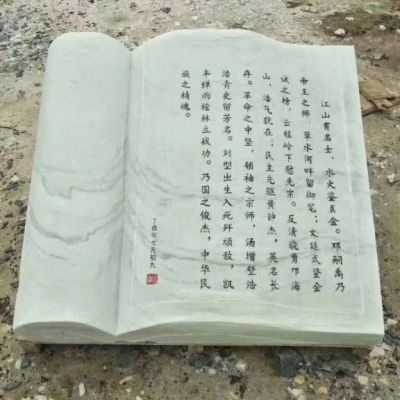 江山有名士，水火鉴真金。邓嗣禹乃
帝王之师，草水河畔留御笔；文廷式登会
试之榜，云程岭下慰先宗。反清骁勇邓海
山，浩气犹在；民主先驱黄钟杰，英名长
存。革命之中坚，领袖之宗师，汤增璧浩
浩青史留芳名。刘型出生入死歼顽敌，凯
丰弹雨枪林立战功。乃国之俊杰，中华民
族之精魂。
丁酉年七月初九